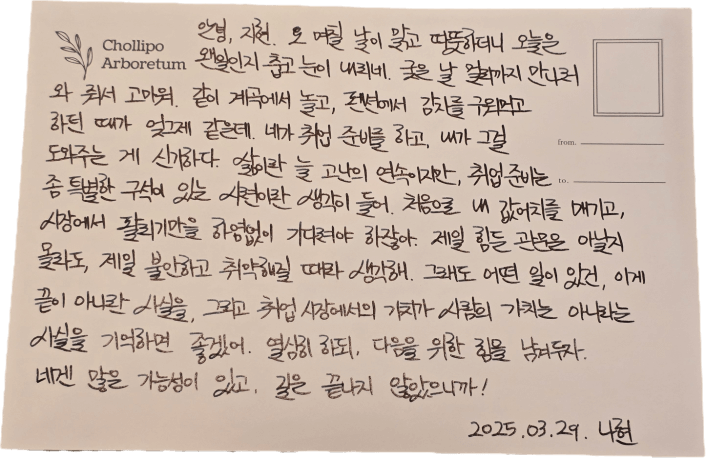 Chollipo
Arboretum
안녕, 지현. 요 며칠 날이 맑고 따뜻하더니 오늘은
웬일인지 춥고 눈이 내리네. 궂은 날 멀리까지 만나러
와 줘서 고마워. 같이 계곡에서 놀고, 펜션에서 감자를 구워먹고
하던 때가 엊그제 같은데. 네가 취업 준비를 하고, 내가 그걸
from.
도와주는 게 신기하다. 삶이란 늘 고난의 연속이지만, 취업 준비는
to.
좀 특별한 구석이 있는 시련이란 생각이 들어. 처음으로 내 값어치를 매기고,
시장에서 팔리기만을 하염없이 기다려야 하잖아. 제일 힘든 관문은 아닐지
몰라도, 제일 불안하고 취약해질 때라 생각해. 그래도 어떤 일이 있건, 이게
끝이 아니란 사실을, 그리고 취업 시장에서의 가치가 사람의 가치는 아니라는
사실을 기억하면 좋겠어. 열심히 하되, 다음을 위한 힘을 남겨두자.
네겐 많은 가능성이 있고, 길은 끝나지 않았으니까!
2025.03.29. 나현